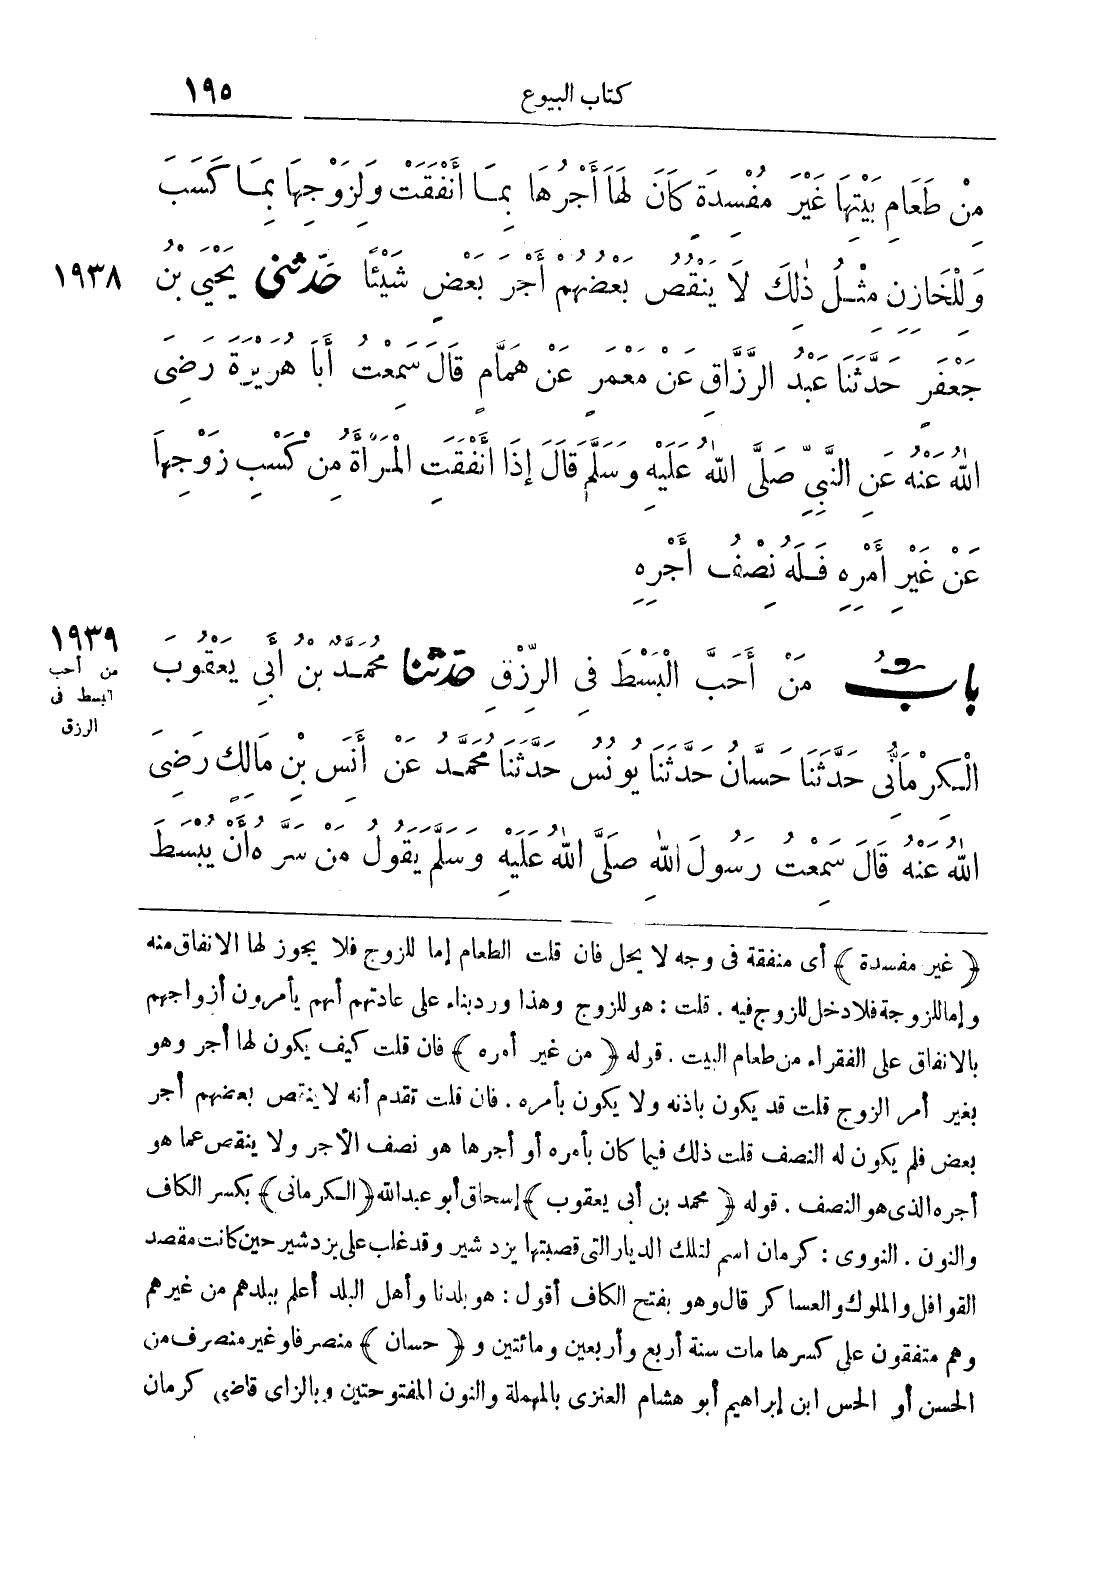 كتاب البيوع ١٩٥
مِنْ طَعَامِ بَيْتِهَا غَيْرَ مُفْسِدَةٍ كَانَ لَهَا أَجْرُهَا بِمَا أَنْفَقَتْ وَلِزَوْجِهَا بِمَا كَسَبَ
وَلِلْخَازِنِ مِثْلُ ذٰلِكَ لَا يَنْقُصُ بَعْضُهُمْ أَجْرَ بَعْضٍ شَيْئًا حَدَّثَنِى يَحْيَى بْنُ ١٩٣٨
جَعْفَرٍ حَدَّثَنَا عَبْدُ الرَّزَّاقِ عَنْ مَعْمَرٍ عَنْ هَمَّامٍ قَالَ سَمِعْتُ أَبَا هُرَيْرَةَ رَضِىَ
اللهُ عَنْهُ عَنِ النَّبِىِّ صَلَّى اللهُ عَلَيْهِ وَسَلَّمَ قَالَ إِذَا أَنْفَقَتِ الْمَرْأَةُ مِنْ كَسْبِ زَوْجِهَا
عَنْ غَيْرِ أَمْرِهِ فَلَهُ نِصْفُ أَجْرِهِ
بابُ مَنْ أَحَبَّ الْبَسْطَ فِى الرِّزْقِ حَدَّثَنَا مُحَمَّدُ بْنُ أَبِى يَعْقُوبَ ١٩٣٩
من أحب
البسط فى
الرزق
الْكِرْمَانِىُّ حَدَّثَنَا حَسَّانُ حَدَّثَنَا يُونُسُ حَدَّثَنَا مُحَمَّدٌ عَنْ أَنَسِ بْنِ مَالِكٍ رَضِىَ
اللهُ عَنْهُ قَالَ سَمِعْتُ رَسُولَ اللهِ صَلَّى اللهُ عَلَيْهِ وَسَلَّمَ يَقُولُ مَنْ سَرَّهُ أَنْ يُبْسَطَ
﴿ غير مفسدة ﴾ أى منفقة فى وجه لا يحل فان قلت الطعام إما للزوج فلا يجوز لها الانفاق منه
وإما للزوجة فلا دخل للزوج فيه . قلت : هو للزوج وهذا ورد بناء على عادتهم أنهم يأمرون أزواجهم
بالانفاق على الفقراء من طعام البيت . قوله ﴿ من غير أمره ﴾ فان قلت كيف يكون لها أجر وهو
بغير أمر الزوج قلت قد يكون باذنه ولا يكون بأمره . فان قلت تقدم أنه لا ينقص بعضهم أجر
بعض فلم يكون له النصف قلت ذلك فيما كان بأمره أو أجرها هو نصف الأجر ولا ينقص عما هو
أجره الذى هو النصف . قوله ﴿ محمد بن أبى يعقوب ﴾ إسحاق أبو عبد الله ﴿ الكرمانى ﴾ بكسر الكاف
والنون . النووى : كرمان اسم لتلك الديار التى قصبتها يزدشير وقد غلب على يزدشير حين كانت مقصد
القوافل والملوك والعساكر قال وهو بفتح الكاف أقول : هو بلدنا وأهل البلد أعلم ببلدهم من غيرهم
وهم متفقون على كسرها مات سنة أربع وأربعين ومائتين و ﴿ حسان ﴾ منصرفا وغير منصرف من
الحسن أو الحس ابن إبراهيم أبو هشام العنزى بالمهملة والنون المفتوحتين وبالزاى قاضى كرمان